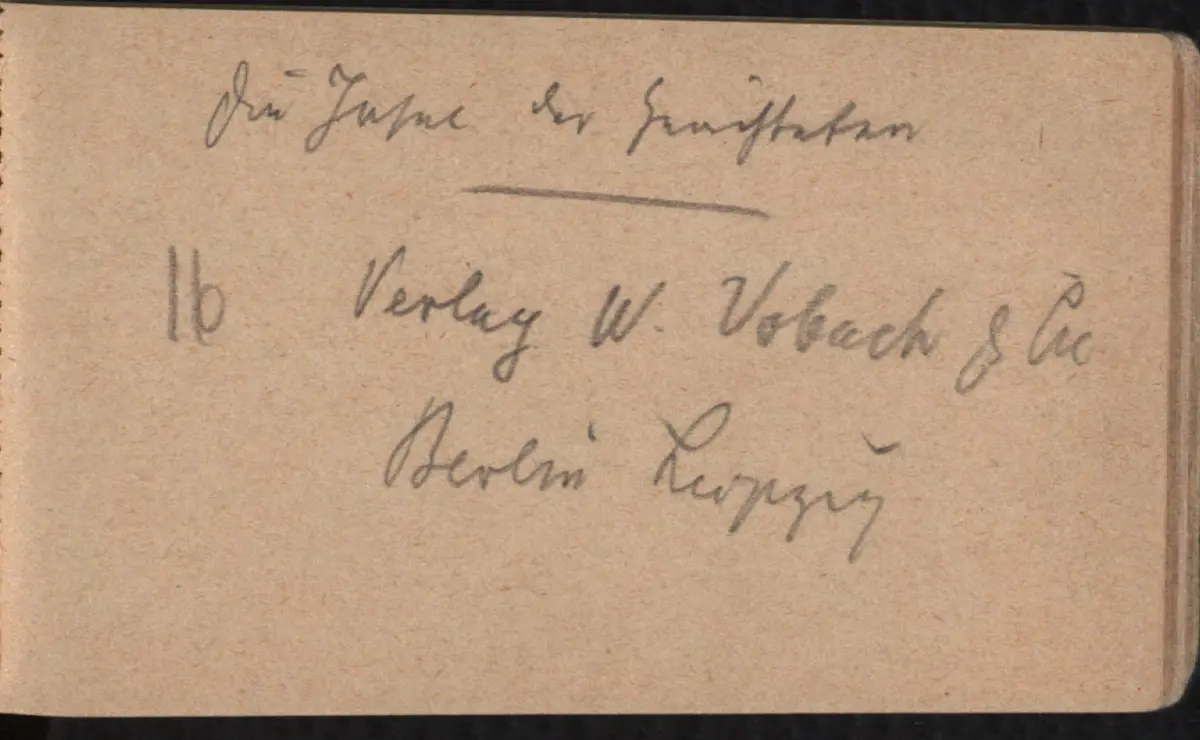 Die Insel der Geächteten
16 Verlag W. Vobach & Cie
Berlin Leipzig